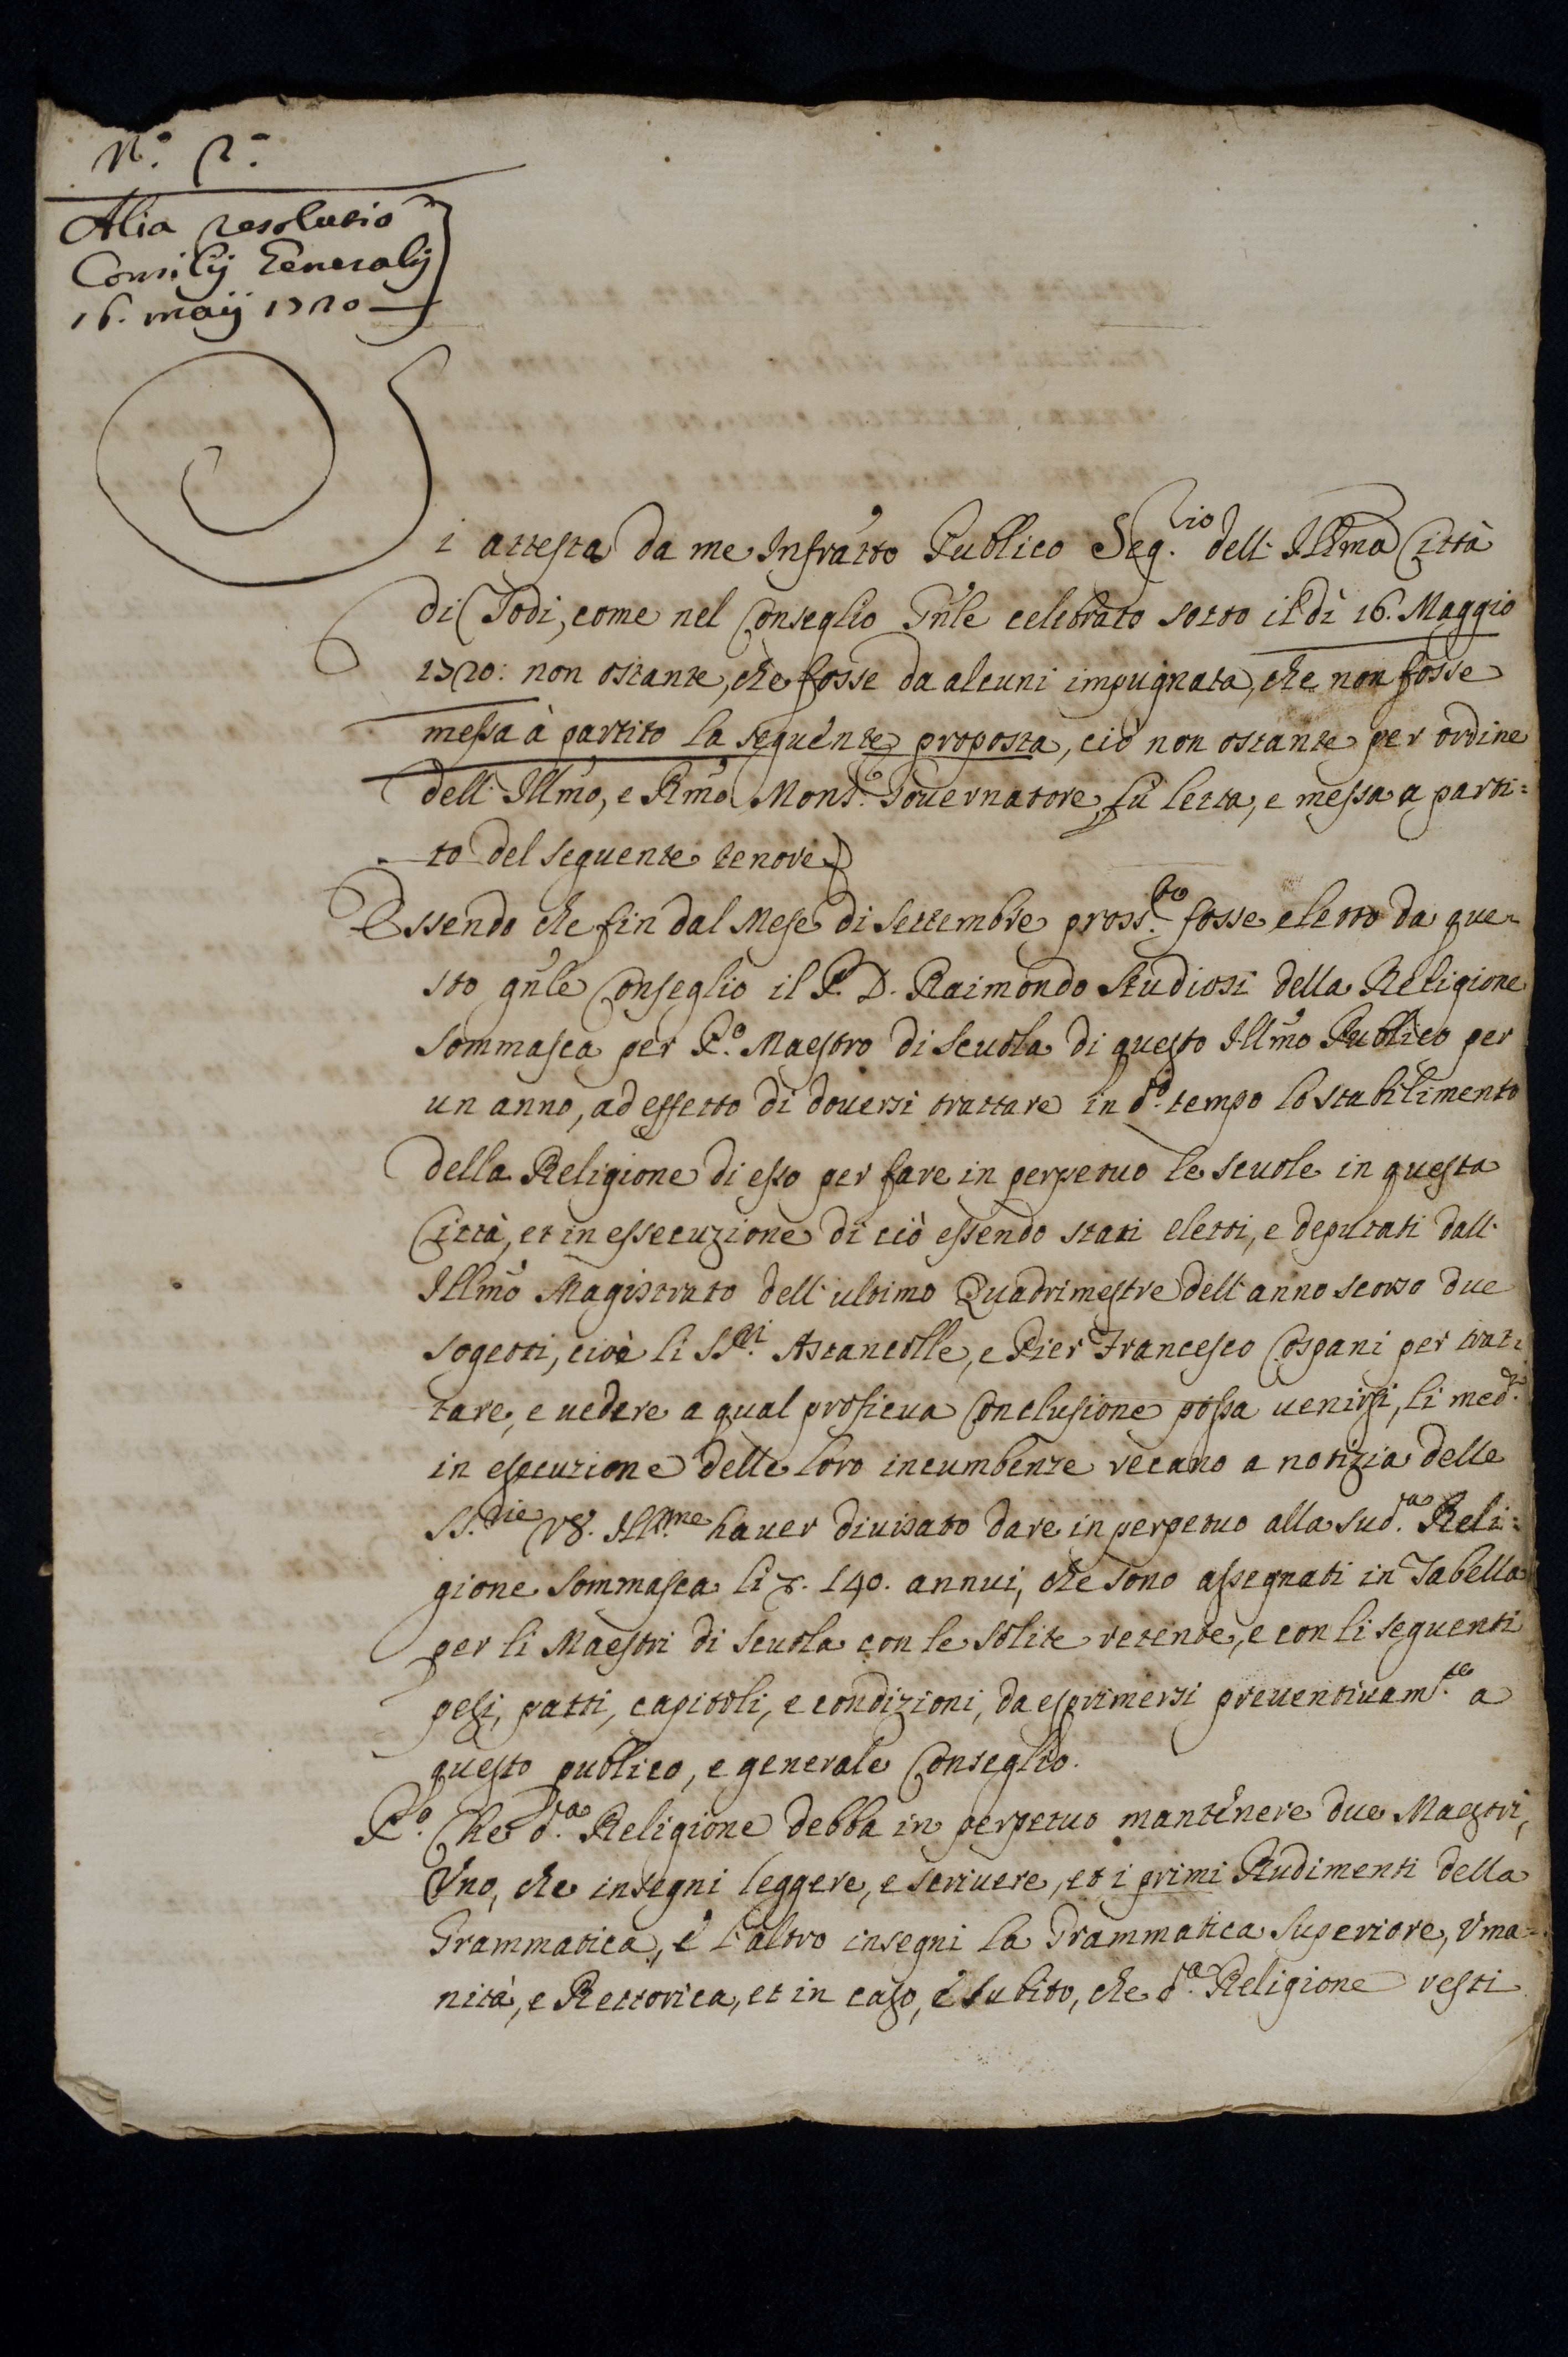 N.o 2.o
Alia resolutio
Consilij Generalis
16. maij 1720
Si attesta da me Infra'tto Publico Seg.rio dell' Ill'ma Città
di Todi, come nel Conseglio G'nle celebrato sotto il dì 16. Maggio
1720: non ostante, che fosse da alcuni impugnata, che non fosse
messa à partito la seguente proposta, ciò non ostante per ordine
dell' Ill'mo, e R'mo Mons.r Gouernatore, fù letta, e messa a parti=
to del seguente tenore
Essendo che fin dal Mese di Settembre pross.to fosse eletto da que=
sto g'nle Conseglio il P. D. Raimondo Studiosi della Religione
Sommasca per P.o Maestro di Scuola di questo Ill'mo Publico per
un anno, ad effetto di douersi trattare in d.o tempo lo stabilimento
della Religione di esso per fare in perpetuo le scuole in questa
Città, et in essecuzione di ciò essendo stati eletti, e deputati dall'
Ill'mo Magistrato dell' ultimo Quadrimestre dell' anno scorso due
sogetti, cioè li SS.ri Astancolle, e Pier Francesco Cospani per trat=
tare, e uedere a qual proficua Conclusione possa uenirsi, li med.i
in esecuzione delle loro incumbenze recano a notizia delle
SS.rie VV. Ill.me hauer diuisato dare in perpetuo alla sud.a Reli=
gione Sommasca li 140. annui, che sono assegnati in Tabella
per li Maestri di Scuola con le solite retente, e con li seguenti
pesi, patti, capitoli, e condizioni, da esprimersi preuentiuam.te a
questo publico, e generale Conseglio.
P.o Che d.a Religione debba in perpetuo mantenere due Maestri,
Vno, che insegni leggere, e scriuere, et i primi Rudimenti della
Grammatica, e l'altro insegni la Grammatica Superiore, Vma=
nità, e Rettorica, et in caso, e subito, che d.a Religione resti